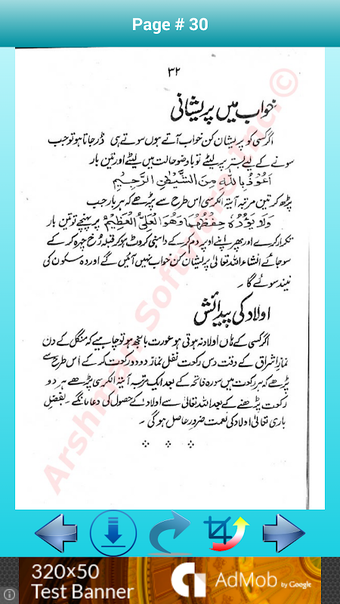 Page # 30
۳۲
خواب میں پریشانی
اگر کسی کو پریشان کن خواب آتے ہوں سوتے ہی ڈر جاتا ہو تو جب
سونے کے لیے بستر پر لیٹے تو باوضو حالت میں لیٹے اور تین بار
اَعُوْذُ بِاللّٰهِ مِنَ الشَّیْطٰنِ الرَّجِیْمِ
پڑھ کر تین مرتبہ آیۃ الکرسی اس طرح سے پڑھے کہ ہر بار جب
وَلَا یَؤُدُهٗ حِفْظُهُمَا وَهُوَ الْعَلِیُّ الْعَظِیْمُ پر پہنچے تو تین بار
تکرار کرے اور پھر اپنے اوپر دم کر کے داہنی کروٹ ہو کر قبلہ رُخ چہرہ کر کے
سو جائے انشاء اللہ تعالیٰ پریشان کن خواب نہیں آئیں گے اور وہ سکون کی
نیند سوئے گا۔
اولاد کی پیدائش
اگر کسی کے ہاں اولاد نہ ہوتی ہو عورت بانجھ ہو تو چاہیے کہ منگل کے دن
نماز اشراق کے وقت دس رکعت نفل نماز دو دو رکعت کر کے اس طرح سے
پڑھے کہ ہر رکعت میں سورہ فاتحہ کے بعد ایک مرتبہ آیۃ الکرسی پڑھے ہر دو
رکعت پڑھنے کے بعد اللہ تعالیٰ سے اولاد کے حصول کی دعا مانگے۔ بفضلِ
باری تعالیٰ اولاد کی نعمت ضرور حاصل ہوگی۔
320x50
Test Banner
AdMob by Google